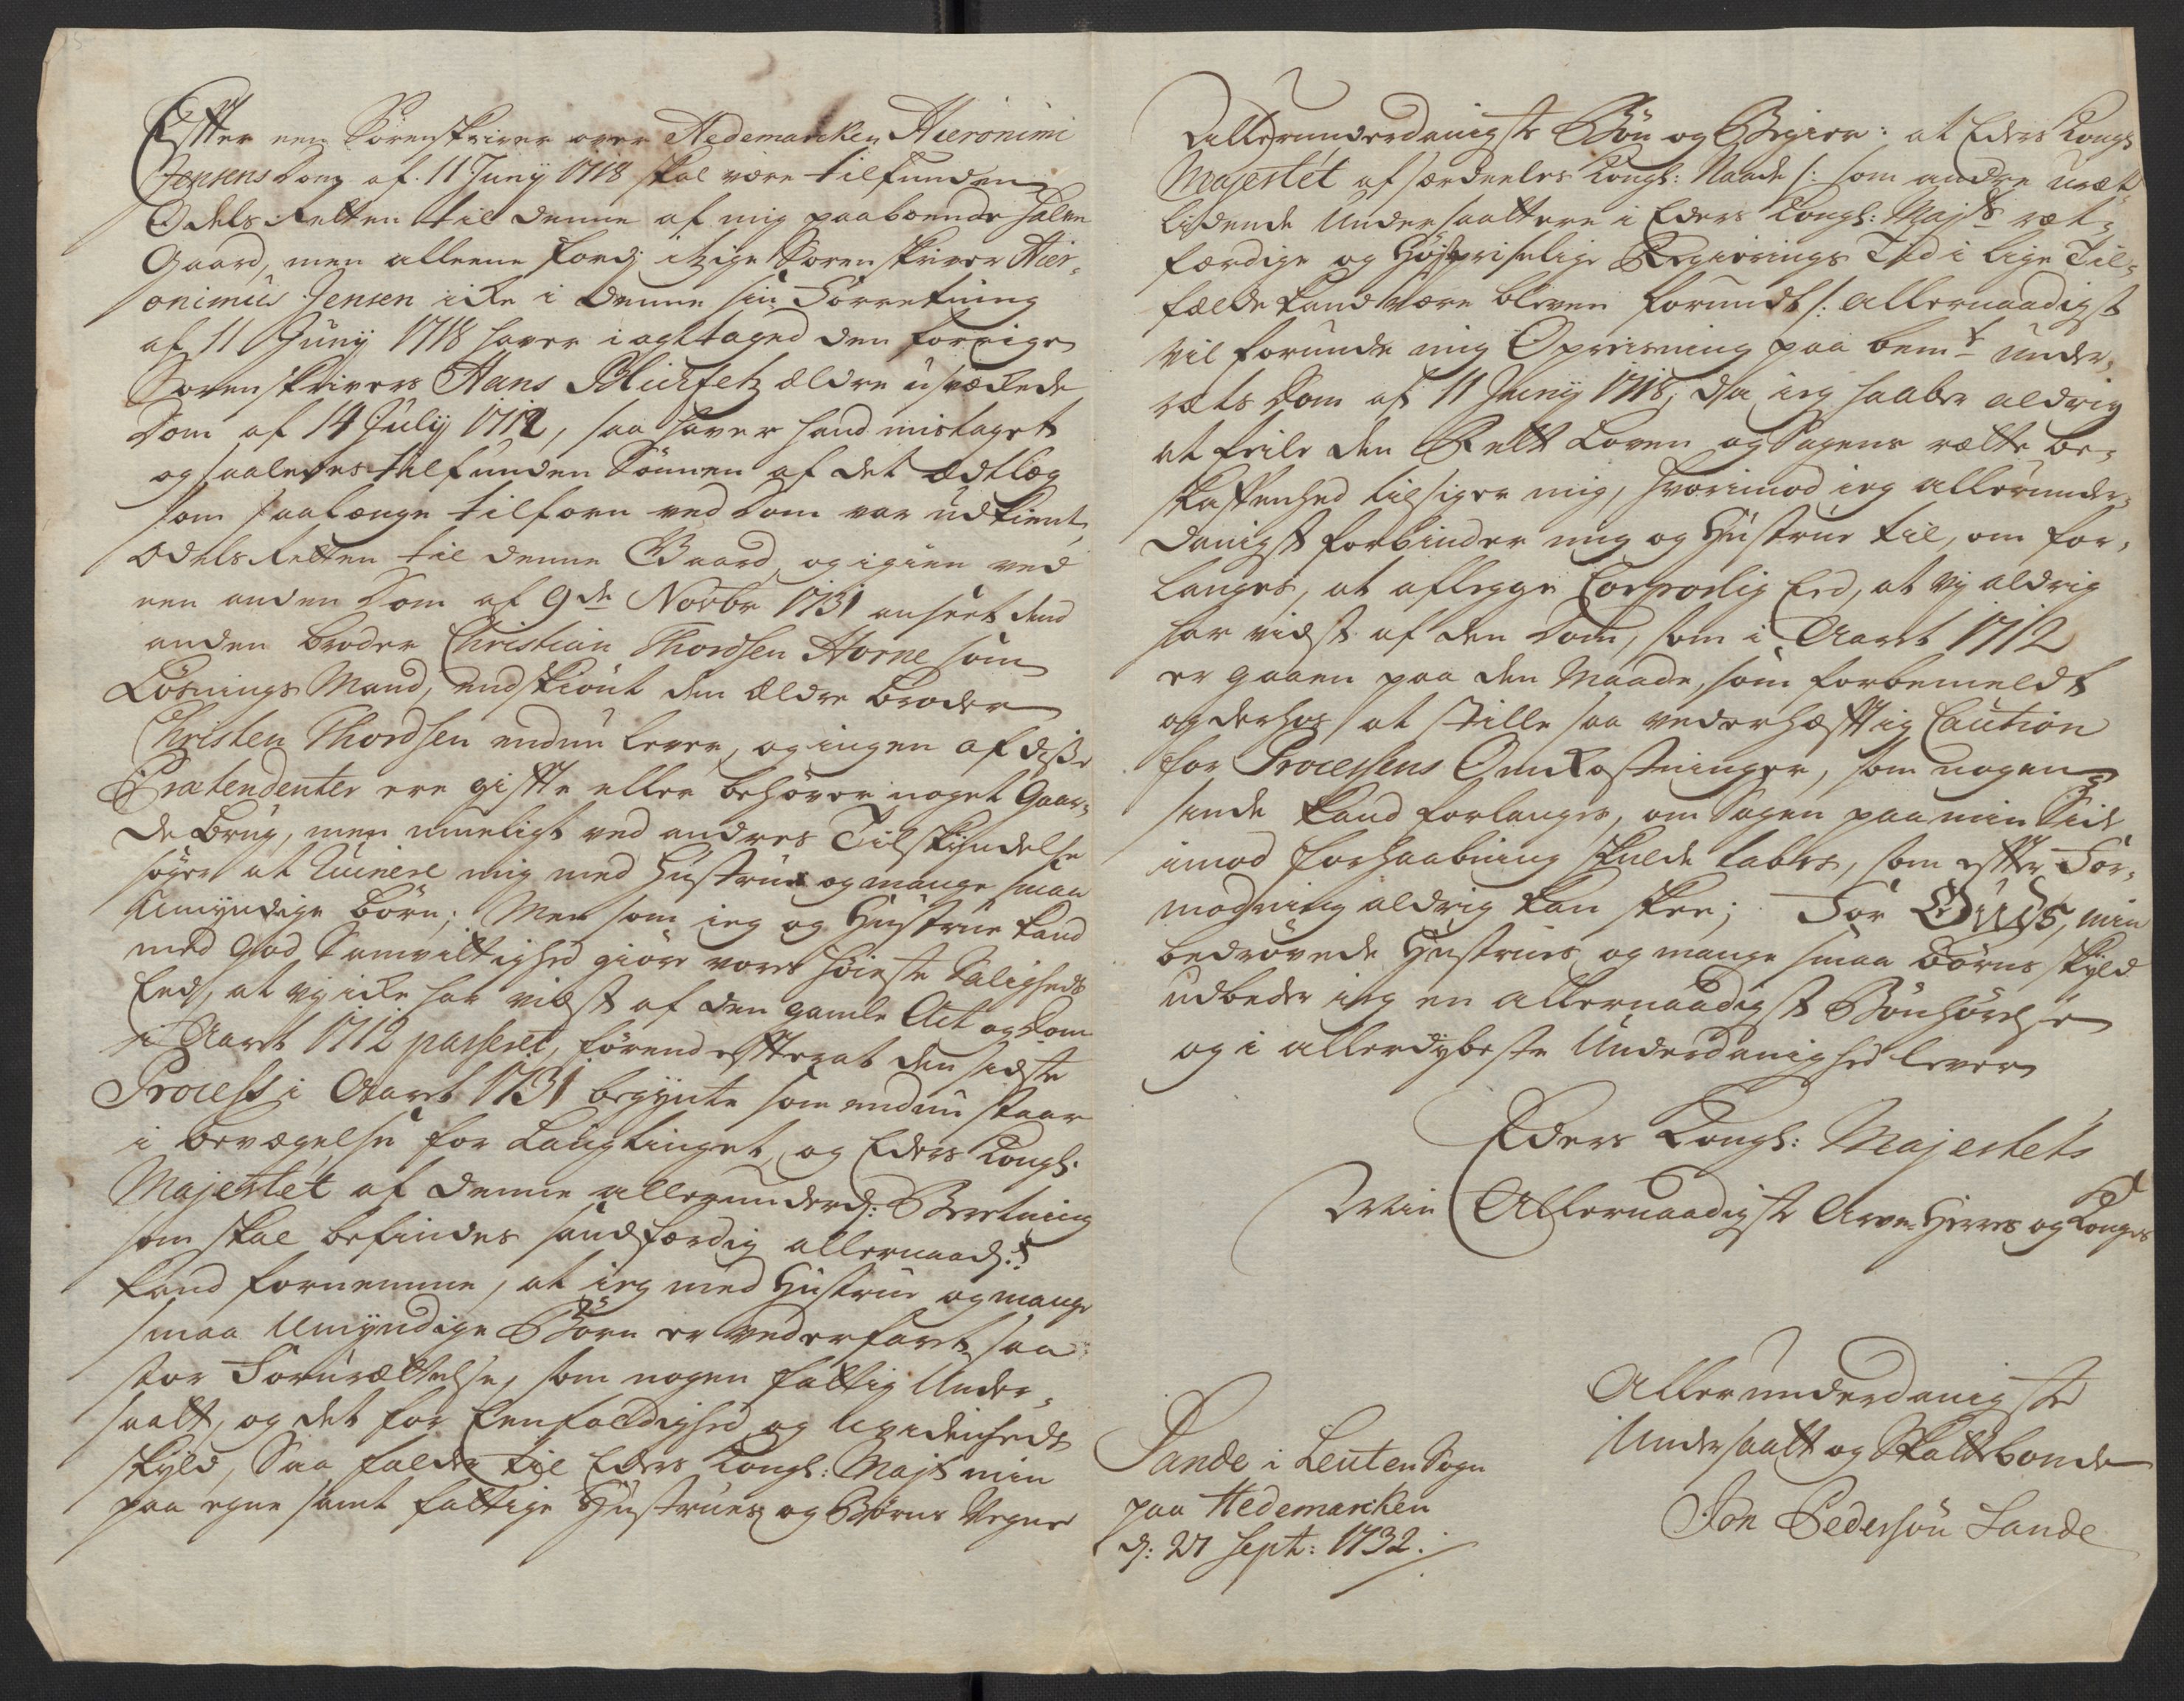 Effter een Sorenskriver over Hedemarcken Hieronimi
Jensens Dom af 11 Juny 1718 skal være tilfunden
Odels Retten til denne af mig paaboende halve
Gaard, men alleene fordj itzige Sorenskriver Hier-
onimus Jensen icke i denne sin Forretning
af 11 Juny 1718 haver iagttaged den forrige
Sorenskrivers Hans Blichfeltz ældre usvækkede
Dom af 14 July 1712, saa haver hand mistaget
og saaledes tilfunden Sönnen af det Ædtleg
som saa længe tilforn ved Dom var udkient
Odels Retten til denne Gaard, og igien ved
een anden Dom af 9de Novbr 1731 anseet dend
anden broder Christian Thordsen Horne som
Lösnings Mand, endskiönt den ældre broder
Christen Thordsen endnu lever, og ingen af disse
Prætendenter ere giffte eller behöver noget Gaar-
de brug, men mueligt ved andres Tilskyndelse
söger at Ruinere mig med Hustrue og mange smaa
Umyndige börn; Men som ieg og Hustrue kand
med god Samvittighed giöre vores höieste Saligheds
Eed, at vj icke har vidst af den gamle Act og Dom
i Aaret 1712 passeret, förend effterat den sidste
Process i Aaret 1731 begynte som endnu staar
i bevægelse for Laugtinget, og Eders Kongl:
Majestet af denne allerunderd: Beretning
som skal befindes sandfærdig allernaad:st
kand fornemme, at ieg med Hustrue og mange
smaa Umyndige Börn er vederfaret saa
stor Forurættelse, som nogen fattig Under-
saatt, og det for Eenfoldighed og Uvidenheds
skyld, Saa falder til Eders Kongl: Majts min
paa egne samt fattige Hustrues og Börns Vegne
Allerunderdanigste Bön og Begier: at Eders Kongl
Majestet af særdeeles Kongl: Naade /: som andre uræt
lidende Undersaattere i Eders Kongl: Majts ræt-
færdige og Höjstpriselige Regierings Tid i lige Til-
fælde kand være bleven forundt :/ allernaadigst
vil forunde mig Opreisning paa bemte under-
rets Dom af 11 Juny 1718, da ieg haaber aldrig
at feile den Rett Loven og Sagens rætte be-
skaffenhed tilsiger mig, hvorimod ieg allerunder-
danigst forbinder mig og Hustrue til, om for-
langes, at aflegge Corporlig Eed, at vj aldrig
har vidst af den Dom, som i Aaret 1712
er gaaen paa den Maade, som forbemeldt
og derhos at stille saa vederhæfftig Caution
for Processens Omkostninger, som nogen-
sinde kand forlanges, om Sagen paa min Side
imod forhaabning skulde tabes, som effter For-
modning aldrig kan skee; For Guds, min
bedrövede Hustrues og mange smaa Börns skyld
udbeder ieg en allernaadigst Bönhörelse
og i allerdybeste Underdanighed lever
Eders Kongl: Majestets
Min Allernaadigste Arve Herres og Konges
Allerunderdanigste
Undersaatt og Skattebonde
Jon Pedersön Sande
Sande i Leuten Sogn
paa Hedemarcken
d: 27 Sept: 1732.